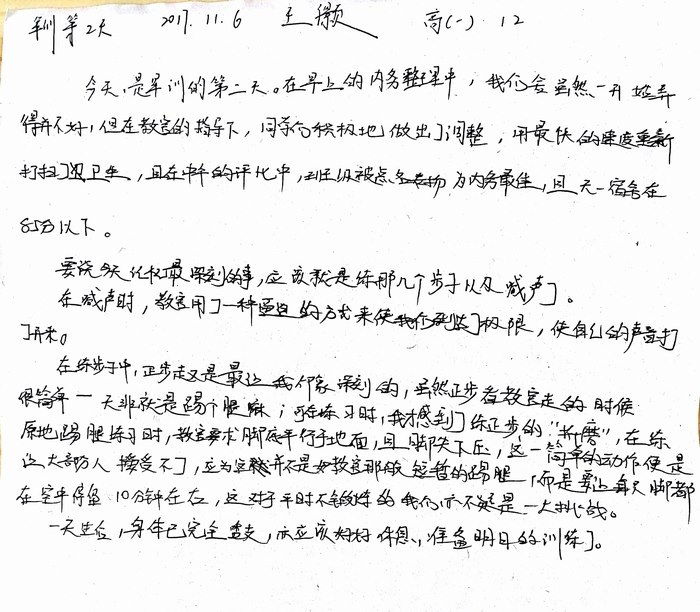 军训第2天 2017.11.6 王灏 高(一) 12
今天,是军训的第二天。在早上的内务整理中,我们会虽然一开始弄
得并不好,但在教官的指导下,同学们积极地做出了调整,用最快的速度重新
打扫了卫生,且在中午的评比中,班级被点名表扬为内务最佳,且无一宿舍在
85分以下。
要说今天让我最深刻的事,应该就是练那几个步子以及喊声了。
在喊声时,教官用了一种的方式来使我们突破了极限,使自己的声音打
了开来。
在练步子中,正步走又是最让我印象深刻的,虽然正步看教官走的时候
很简单一无非就是踢个腿嘛;可在练习时,我才感到了练正步的"折磨",在练
原地踢腿练习时,教官要求脚底平行于地面,且脚尖下压,这一简单的动作便是
让大部分人接受不了,应为这并不是如教官那般短暂的踢腿,而是要让每只脚都
在空中停留10分钟左右,这对于平时不锻炼的我们亦不疑是一大挑战。
一天坐后,身体已完全透支,应该好好休息,准备明日的训练了。